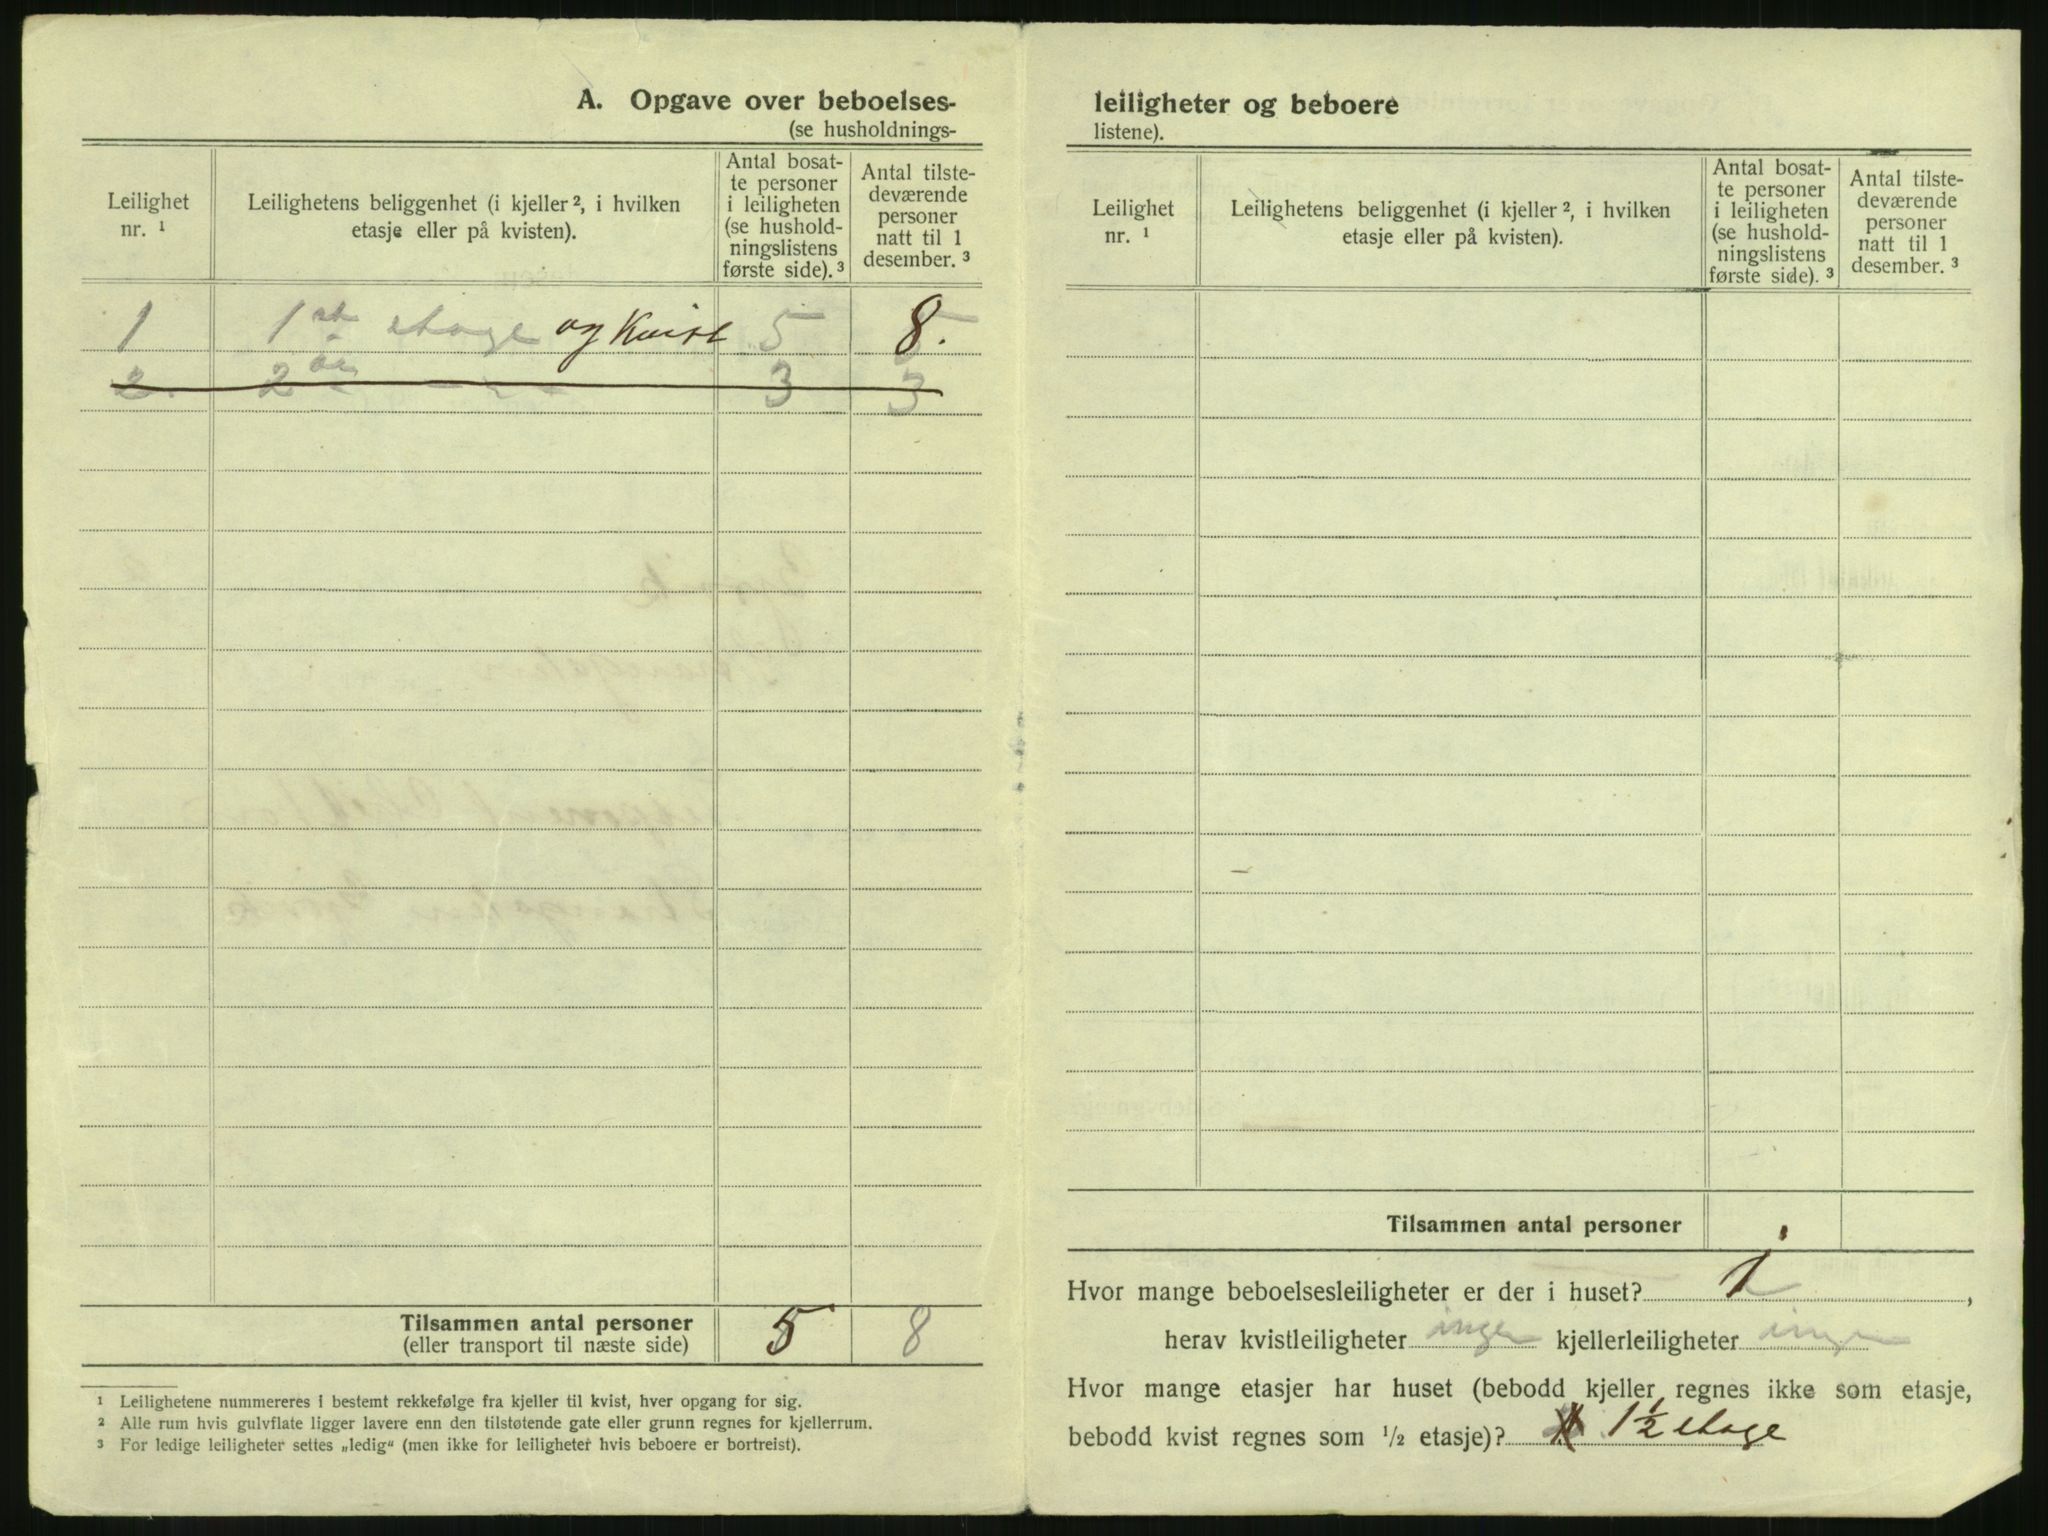 A. Opgave over beboelses-
(se husholdnings-
Leilighet nr. ¹
Leilighetens beliggenhet (i kjeller ², i hvilken etasje eller på kvisten).
Antal bosat-
te personer
i leiligheten
(se hushold-
ningslistens
første side). ³
Antal tilste-
deværende
personer
natt til 1
desember. ³
1 1st etage og Kvist 5 8.
2. 2den - " - 3 3
Tilsammen antal personer 5 8
(eller transport til næste side)
¹ Leilighetene nummereres i bestemt rekkefølge fra kjeller til kvist, hver opgang for sig.
² Alle rum hvis gulvflate ligger lavere enn den tilstøtende gate eller grunn regnes for kjellerrum.
³ For ledige leiligheter settes „ledig“ (men ikke for leiligheter hvis beboere er bortreist).
leiligheter og beboere
listene).
Leilighet nr. ¹
Leilighetens beliggenhet (i kjeller ², i hvilken etasje eller på kvisten).
Antal bosat-
te personer
i leiligheten
(se hushold-
ningslistens
første side). ³
Antal tilste-
deværende
personer
natt til 1
desember. ³
Tilsammen antal personer
Hvor mange beboelsesleiligheter er der i huset? 1,
herav kvistleiligheter ingen kjellerleiligheter ingen
Hvor mange etasjer har huset (bebodd kjeller regnes ikke som etasje,
bebodd kvist regnes som ¹/₂ etasje)? 1½ etage